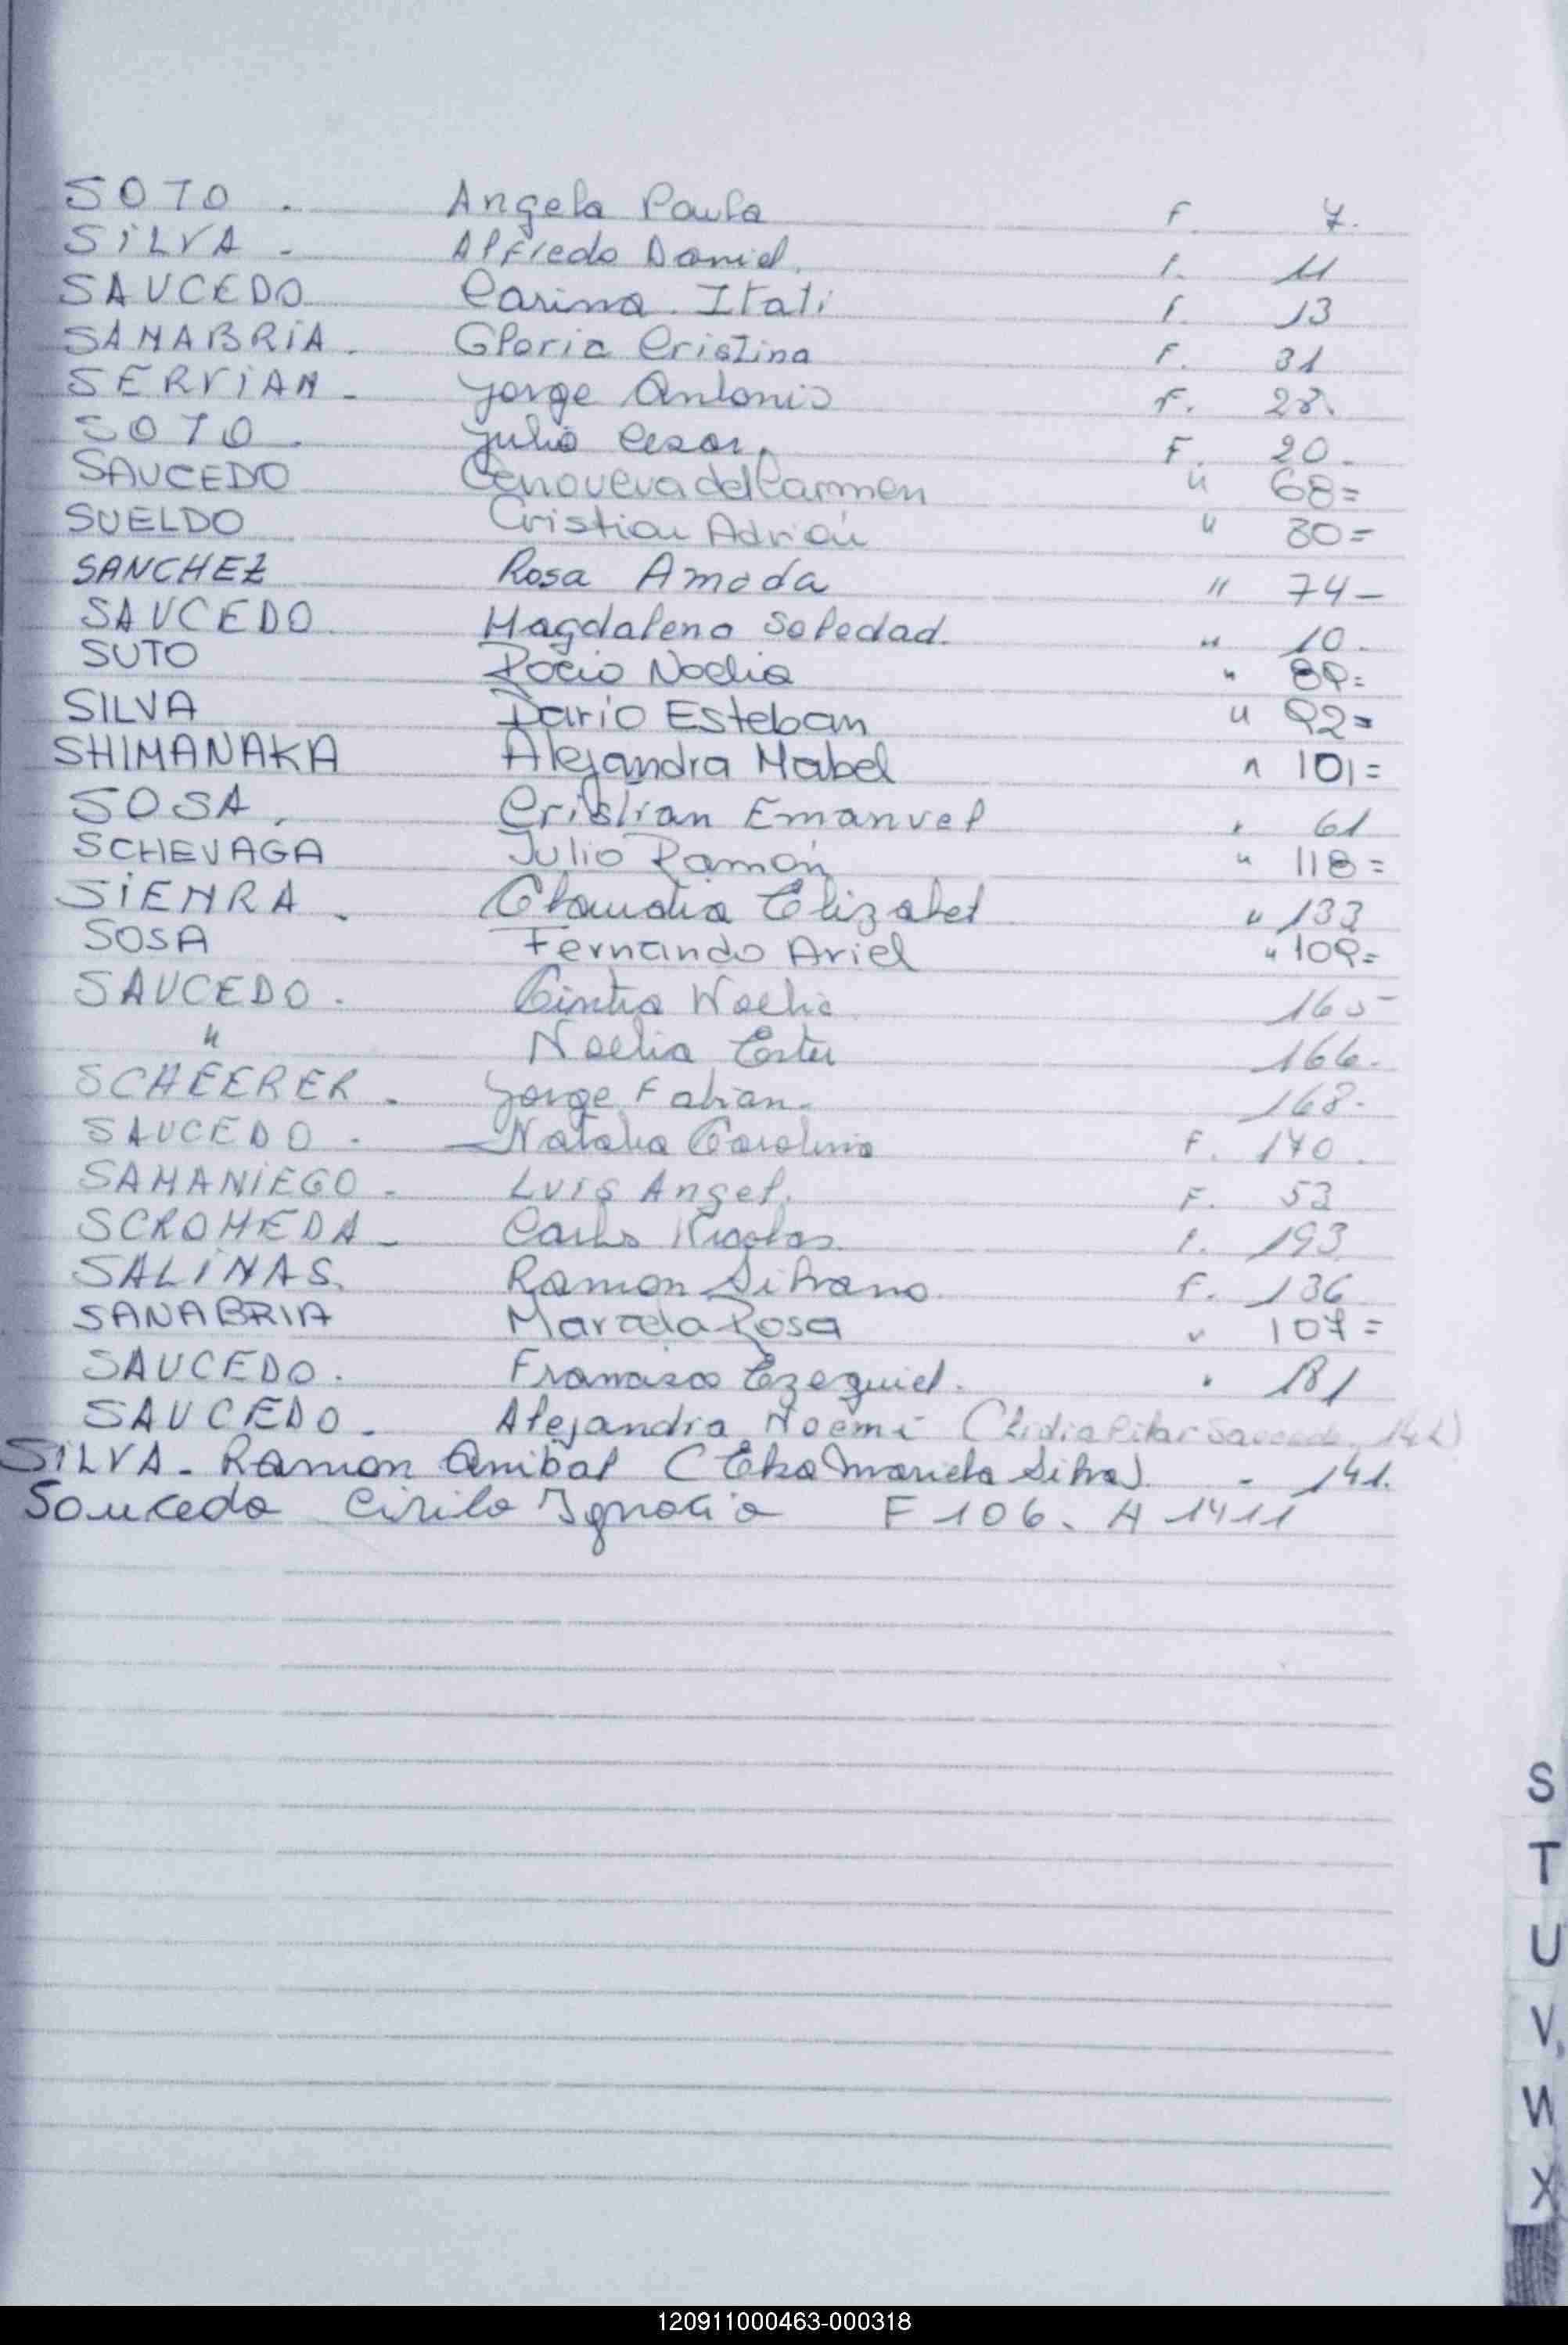 SOTO . Angela Paula F. 7.
SILVA - Alfredo Daniel. F. 11
SAUCEDO Carina Itati F. 13
SANABRIA . Gloria Cristina F. 31
SERVIAN - Jorge Antonio F. 28.
SOTO . Julio Cesar. F. 20.
SAUCEDO Genoveva del Carmen " 68=
SUELDO Cristian Adrián " 80=
SANCHEZ Rosa Amada " 74-
SAUCEDO Magdalena Soledad. " 10.
SUTO Rocio Noelia " 89=
SILVA Dario Esteban " 92=
SHIMANAKA Alejandra Mabel " 101=
SOSA . Cristian Emanuel " 61
SCHEVAGA Julio Ramón " 118=
SIENRA . Claudia Elizabet " 133
SOSA Fernando Ariel " 109=
SAUCEDO . Cintia Noelia 165
" Noelia Ester 166.
SCHEERER . Jorge Fabian. 168.
SAUCEDO . Natalia Carolina F. 170.
SAMANIEGO - Luis Angel. F. 52
SCROMEDA - Carlos Nicolas F. 193
SALINAS. Ramon Silvano F. 136
SANABRIA Marcela Rosa " 107=
SAUCEDO . Francisco Ezequiel. " 181
SAUCEDO . Alejandra Noemi (Lidia Pilar Saucedo
SILVA - Ramon Anibal (Elsa Mariela Silva) - 141.
Saucedo Cirilo Ignacio F 106. A 1411
S
T
U
V
W
X
120911000463-000318